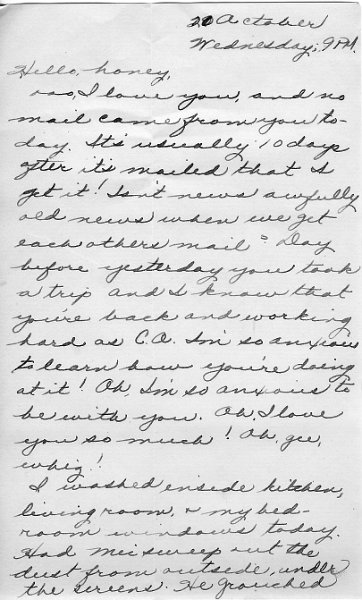 20 October
Wednesday, 9 P.M.
Hello, honey,
I love you, and no
mail came from you to-
day. It's usually 10 days
after it's mailed that I
get it! Isn't news awfully
old news when we get
each others mail? Day
before yesterday you took
a trip and I know that
you're back and working
hard as C.O. I'm so anxious
to learn how you're doing
at it! Oh, I'm so anxious to
be with you. Oh, I love
you so much! Oh, gee,
whiz!
I washed inside kitchen,
living room, & my bed-
room windows today.
Had sweep out the
dust from outside, under
the screens. He grouched